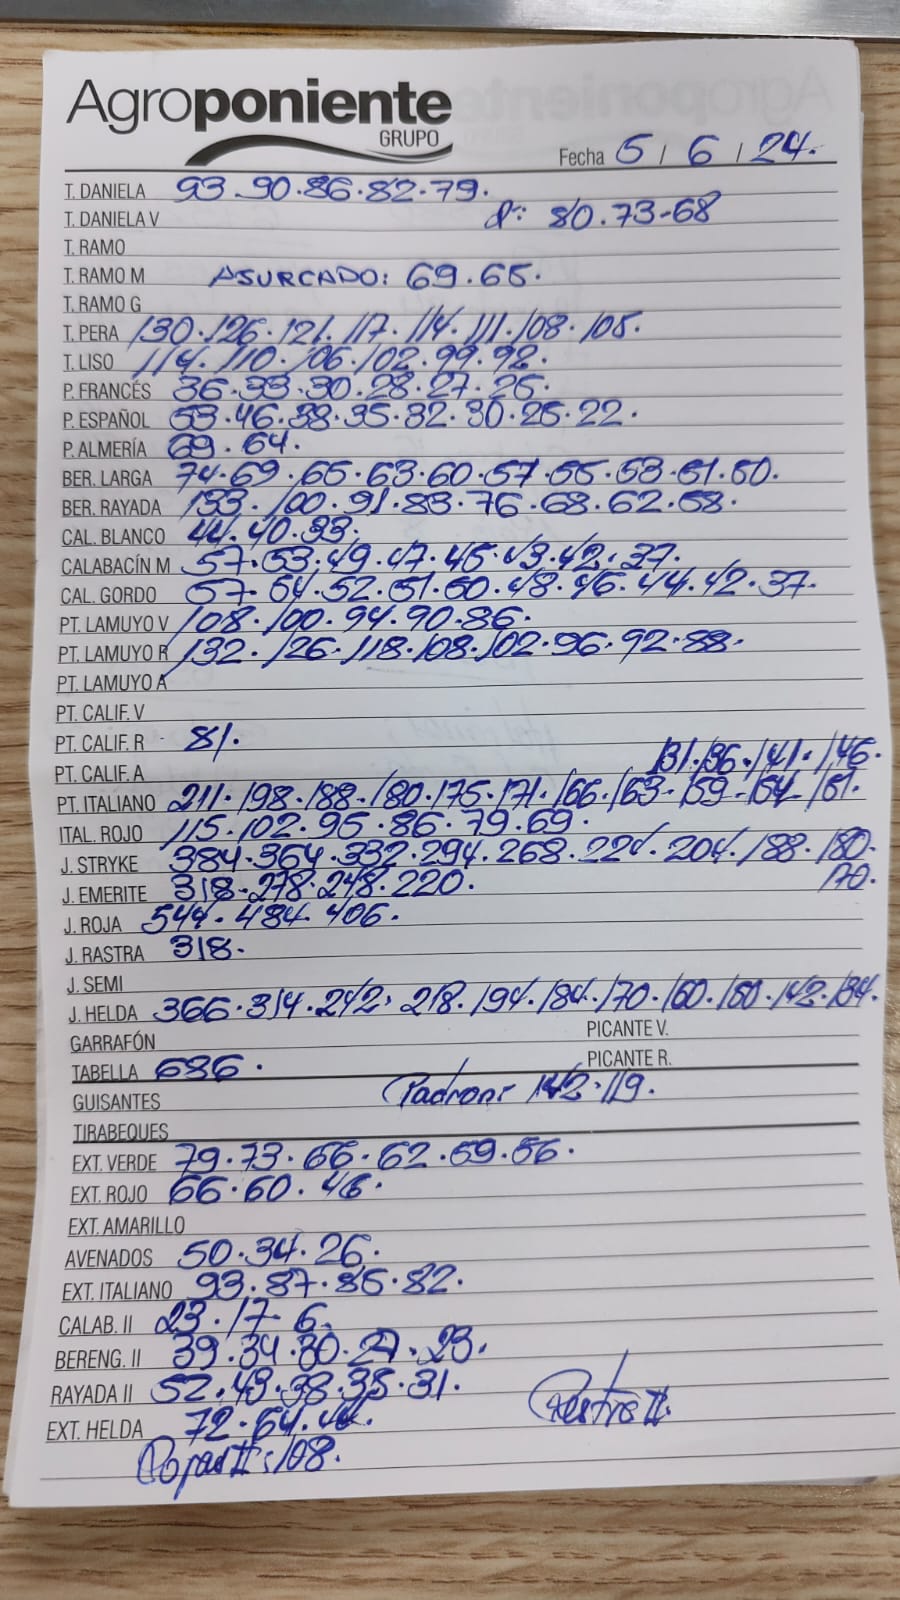 Agroponiente
GRUPO
Fecha 5 / 6 / 24.
T. DANIELA 93.90.86.82.79.
T. DANELA V 2ª: 80.73-68
T. RAMO
T. RAMO M ASURCADO: 69.65.
T. RAMO G
T. PERA 130.126.121.117.114.111.108.105.
T. LISO 114.110.106.102.99.92.
P. FRANCÉS 36.33.30.28.27.25.
P. ESPAÑOL 53.46.38.35.32.30.25.22.
P. ALMERÍA 69.64.
BER. LARGA 74.69.65.63.60.57.55.53.51.50.
BER. RAYADA 133.100.91.83.76.68.62.58.
CAL. BLANCO 44.40.33.
CALABACÍN M 57.53.49.47.45.43.42.37.
CAL. GORDO 57.54.52.51.50.48.46.44.42.37.
PT. LAMUYO V 108.100.94.90.86.
PT. LAMUYO R 132.126.118.108.102.96.92.88.
PT. LAMUYO A
PT. CALIF. V
PT. CALIF. R 81.
PT. CALIF. A 131.136.141.146.
PT. ITALIANO 211.198.188.180.175.171.166.163-159-154-151.
ITAL. ROJO 115.102.95.86.79.69.
J. STRYKE 384.364.332.294.268.224.204.188.180.
J. EMERITE 318-278.248.220. 170.
J. ROJA 544.484.406.
J. RASTRA 318.
J. SEMI
J. HELDA 366.314.242.218.194.184.170.160.150.142.134.
GARRAFÓN PICANTE V.
TABELLA 686. PICANTE R.
GUISANTES Padron: 142.119.
TIRABEQUES
EXT. VERDE 79.73.66.62.59.56.
EXT. ROJO 66.60.46.
EXT. AMARILLO
AVENADOS 50.34.26.
EXT. ITALIANO 93.87.85.82.
CALAB. II 23.17-6.
BERENG. II 39.34.30.27.23.
RAYADA II 52.43.38.35.31.
EXT. HELDA 72.64. Rastra II.
Rojas II: 108.